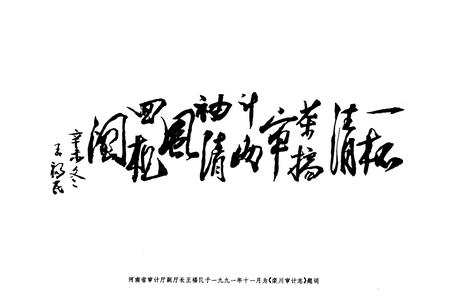 一杯
清
茶搞
审
计两
袖清
风
回机
關
辛未冬
王福民
河南省审计厅副厅长王福民于一九九一年十一月为《栾川审计志》题词